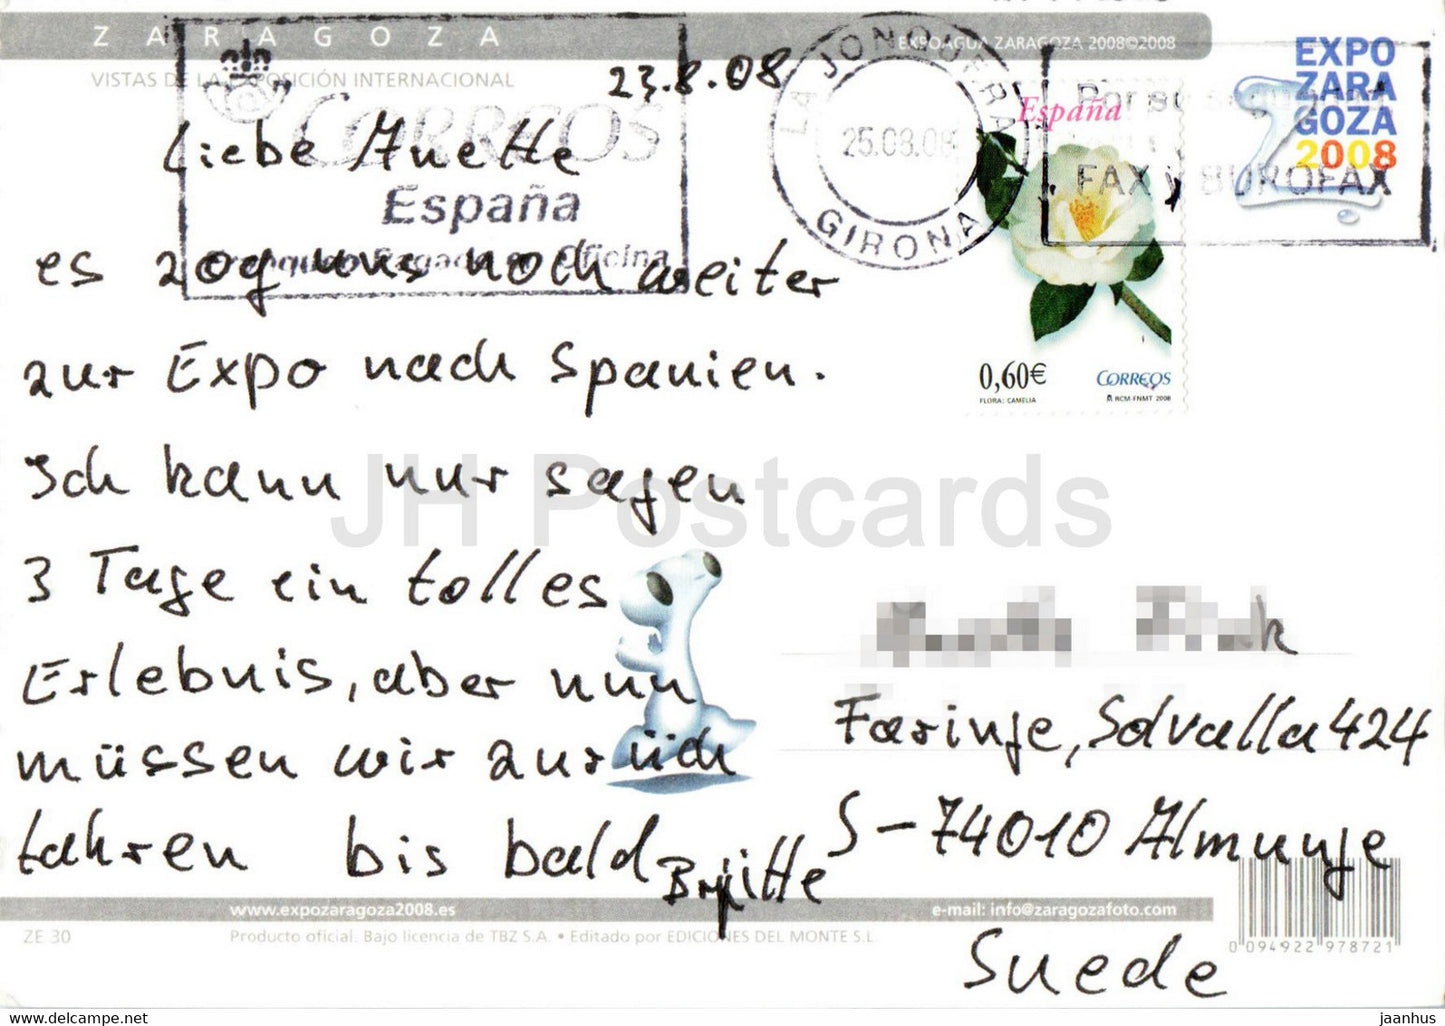 ZARAGOZA
EXPOAGUA ZARAGOZA 2008©2008
VISTAS DE LA EXPOSICIÓN INTERNACIONAL
EXPO
ZARA
GOZA
2008
CORREOS
España
Franqueo Pagado en Oficina
LA JONQUERA
25.08.08
GIRONA
Por su seguridad
FAX y BUROFAX
España
0,60€
CORREOS
FLORA: CAMELIA
RCM-FNMT 2008
23.8.08
Liebe Anette
es zog uns noch weiter
zur Expo nach Spanien.
Ich kann nur sagen
3 Tage ein tolles
Erlebnis, aber nun
müssen wir zurück
fahren bis bald Brigitte
Faringe, Solvalla 424
S-74010 Almunge
Suede
JH Postcards
www.expozaragoza2008.es
e-mail: info@zaragozafoto.com
ZE 30
Producto oficial. Bajo licencia de TBZ S.A. • Editado por EDICIONES DEL MONTE S.L.
0 094922 978721
www.delcampe.net
jaanhus